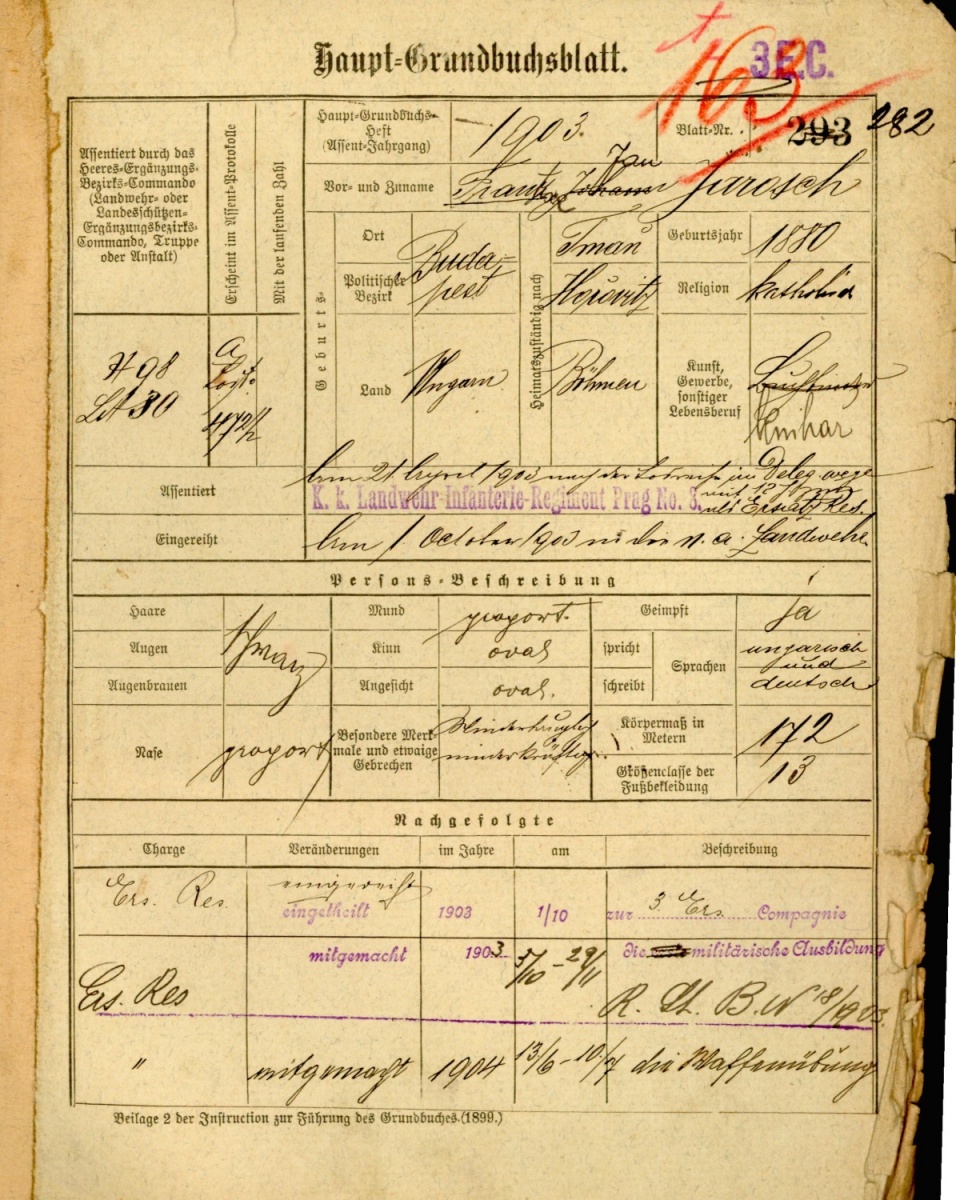 Haupt-Grundbuchsblatt.
163
3 E.C.
Haupt-Grundbuchs-
Heft
(Assent-Jahrgang)
1903.
Blatt-Nr.
293 282
Assentiert durch das
Heeres-Ergänzungs-
Bezirks-Commando
(Landwehr- oder
Landesschützen-
Ergänzungsbezirks-
Commando, Truppe
oder Anstalt)
Erscheint im Assent-Protokolle
Mit der laufenden Zahl
Vor- und Zuname
Jan
Johann Jarosch
Geburts-
Ort
Politischer
Bezirk
Buda-
pest
Land
Ungarn
Heimatszuständig nach
Tmaň
Hořovitz
Böhmen
Geburtsjahr
1880
Religion
katholisch
Kunst,
Gewerbe,
sonstiger
Lebensberuf
Knihař
98
30
a
472/2
Assentiert
Am 21 April 1903 auf
K. k. Landwehr-Infanterie-Regiment Prag No. 8.
als Ersatz Res.
Eingereiht
Am 1 October 1903 in die n. a. Landwehr
Persons-Beschreibung
Haare
Augen
Augenbrauen
schwarz
Nase
proport
Mund
proport.
Kinn
oval
Angesicht
oval.
Besondere Merk-
male und etwaige
Gebrechen
Mindertauglich
minderkräftig.
Geimpft
ja
spricht
schreibt
Sprachen
ungarisch
und
deutsch
Körpermaß in
Metern
172
Größenclasse der
Fußbekleidung
13
Nachgefolgte
Charge Veränderungen im Jahre am Beschreibung
eingereiht
Ers. Res. eingetheilt 1903 1/10 zur 3. Ers. Compagnie
mitgemacht 1903 5/10 - 29/11 die militärische Ausbildung
Ers. Res R. St. B. N 18/1903.
" mitgemacht 1904 13/6 - 10/7 die Waffenübung
Beilage 2 der Instruction zur Führung des Grundbuches (1899.)